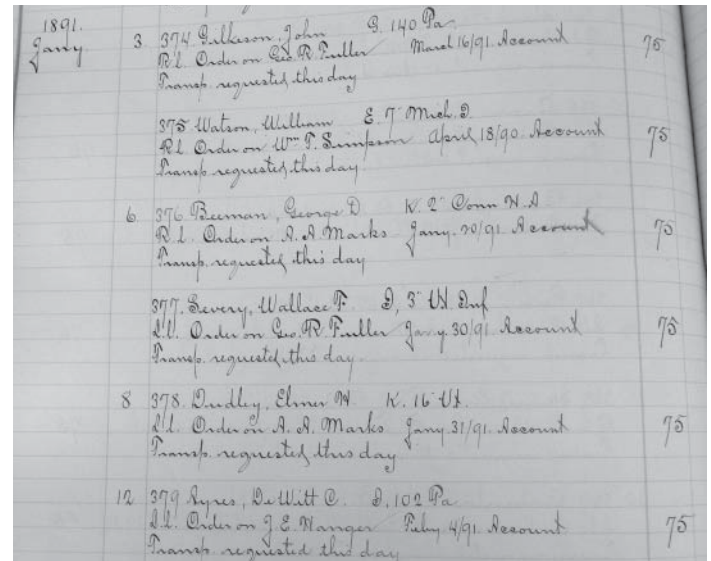 1891.
Jany 3 374 Gilkeson, John G. 140 Pa
R.L. Order on Geo. R. Fuller March 16/91. Account 75
Transp. requested this day
375 Watson, William E. 7 Mich.
R.L. Order on Wm T. Simpson April 18/90. Account 75
Transp. requested this day
6 376. Beeman, George D K. 2 Conn H.A
R.L. Order on A. A. Marks Jany. 20/91. Account 75
Transp. requested this day
377. Severy, Wallace F. D, 3 Vt. Inf
L.L. Order on Geo. R. Fuller Jany. 30/91. Account 75
Transp. requested this day.
8 378. Dudley, Elmer K. 16 Vt.
L.L. Order on A. A. Marks Jany. 31/91. Account 75
Transp. requested this day
12 379 Ayres, DeWitt C. D, 102 Pa
L.L. Order on J. E. Hanger Feby. 4/91. Account 75
Transp. requested this day